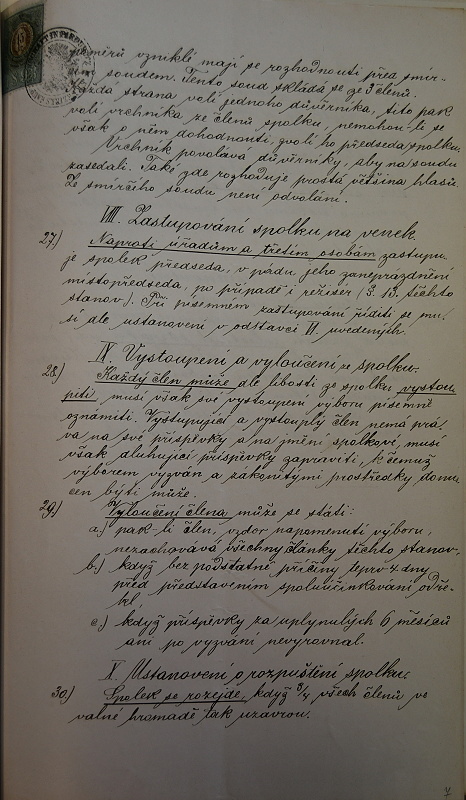 poměrů vzniklé mají se rozhodnouti před smír-
ým soudem. Tento soud skládá se ze 3 členů.
Každá strana volí jednoho důvěrníka, tito pak
volí vrchníka ze členů spolku, nemohou-li se
však o něm dohodnouti, zvolí ho předseda spolku.
Vrchník povolává důvěrníky, aby na soudu
zasedali. Také zde rozhoduje prostá většina hlasů.
Ze smírčího soudu není odvolání.
VIII. Zastupování spolku na venek.
27.) Naproti úřadům a třetím osobám zastupu-
je spolek předseda, v pádu jeho zaneprázdnění
místopředseda, po případě i režisér (§. 13. těchto
stanov). Při písemném zastupování říditi se mu-
sí dle ustanovení v odstavci VI. uvedených.
IX. Vystoupení a vyloučení ze spolku.
28.) Každý člen může dle libosti ze spolku vystou-
piti, musí však své vystoupení výboru písemně
oznámiti. Vystupující a vystouplý člen nemá prá-
va na své příspěvky a na jmění spolkové, musí
však dluhující příspěvky zapraviti, k čemuž
výborem vyzván a zákonitými prostředky donu-
cen býti může.
29.) Vyloučení člena může se státi:
a.) pak-li člen, vzdor napomenutí výboru,
nezachovává všechny články těchto stanov,
b.) když bez podstatné příčiny teprv dny
před představením spoluúčinkování odře-
kl,
c.) když příspěvky za uplynulých 6 měsíců
ani po vyzvání nevyrovnal.
X. Ustanovení o rozpuštění spolku.
30.) Spolek se rozejde, když 3/4 všech členů ve
valné hromadě tak uzavrou.
7